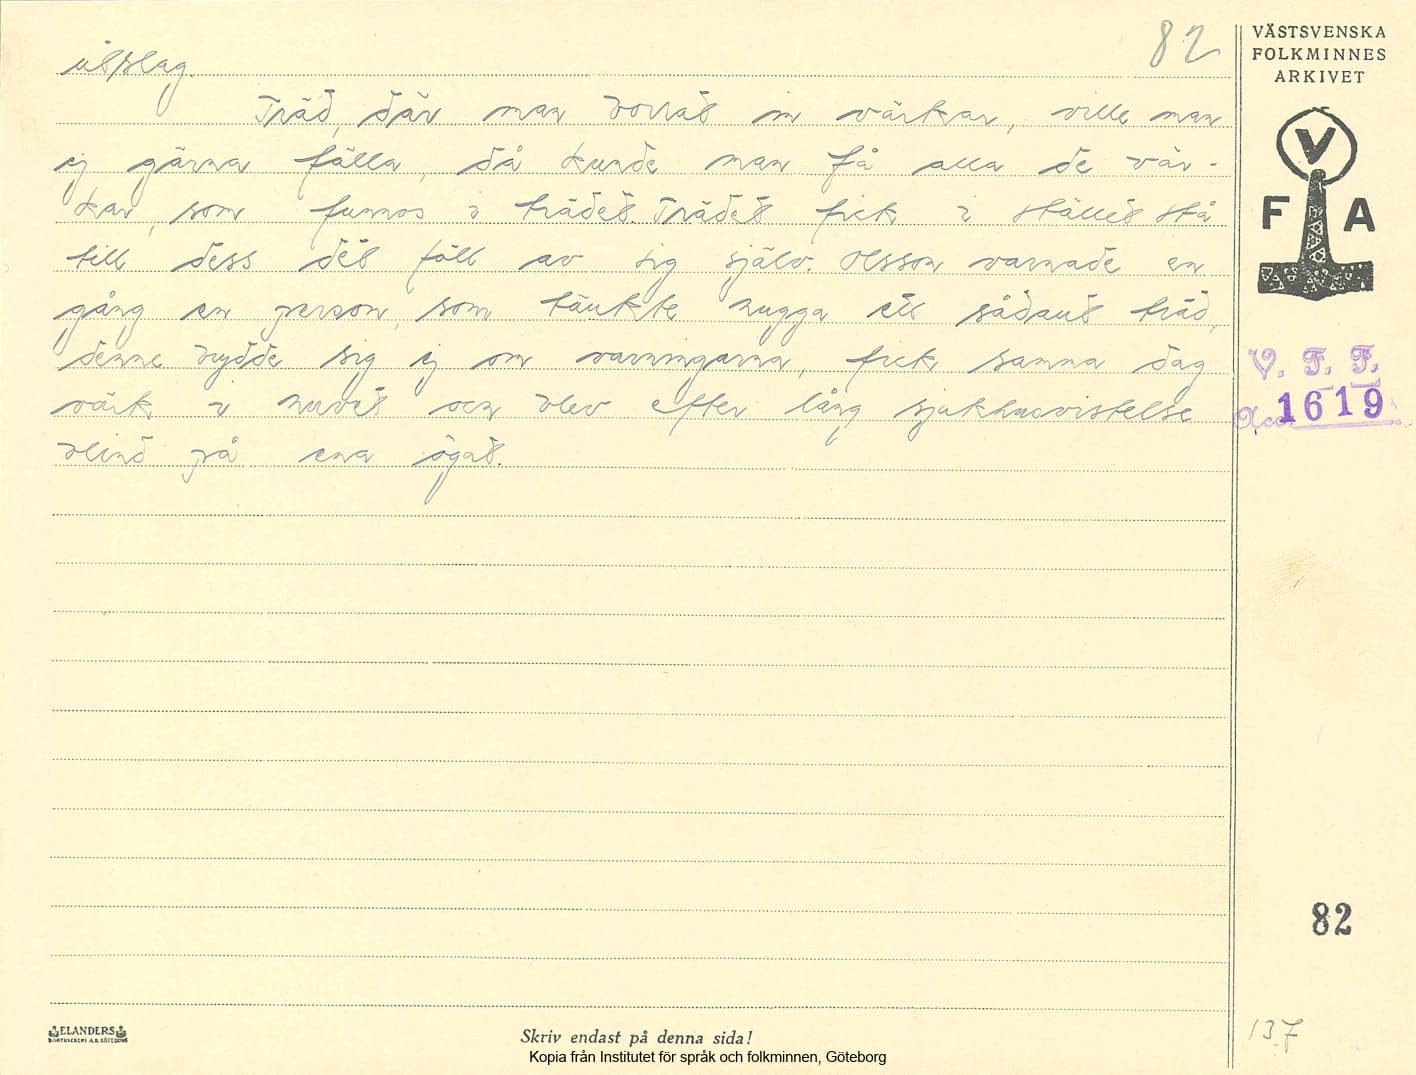 82
utslag.
Träd, där man borrat in värkar, ville man
ej gärna fälla, då kunde man få alla de vär-
kar, som funnos i trädet. Trädet fick i stället stå
till dess det föll av sig själv. Olsson varnade en
gång en person, som tänkte hugga ett sådant träd,
denne brydde sig ej om varningarna, fick samma dag
värk i huvet och blev efter lång sjukhusvistelse
blind på ena ögat.
VÄSTSVENSKA
FOLKMINNES
ARKIVET
V
F A
V. F. F.
Acc. 1619
82
137
ELANDERS
BOKTRYCKERI A.B. GÖTEBORG
Skriv endast på denna sida!
Kopia från Institutet för språk och folkminnen, Göteborg